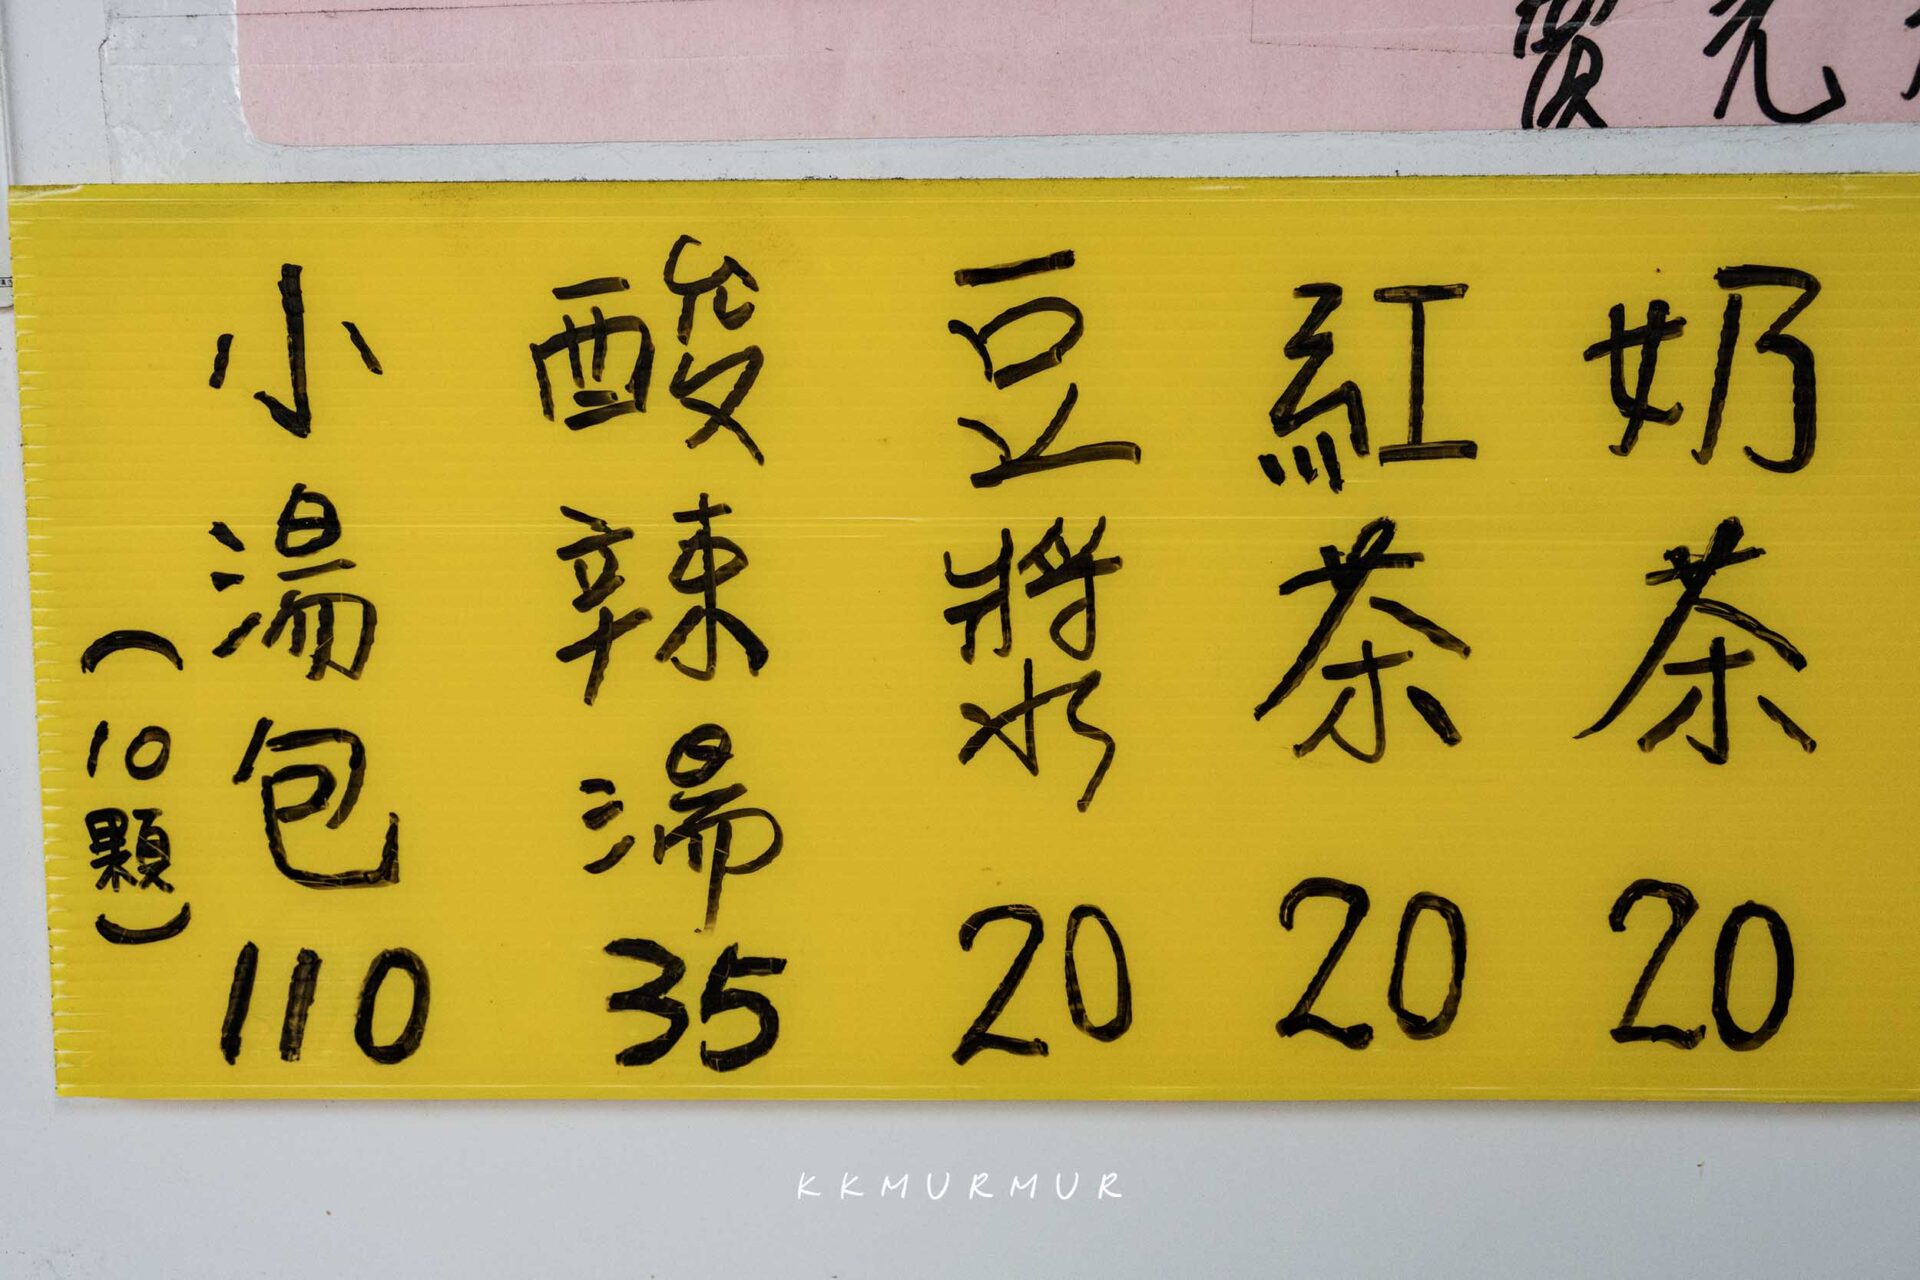 奶茶 20
紅茶 20
豆漿 20
酸辣湯 35
小湯包 110
(10顆)
KKMURMUR